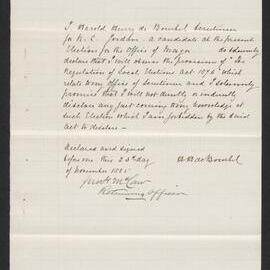 I Harold Henry de Bourbel Scrutineer
for W. L. Jordan a candidate at the present
Election for the Office of Mayor do solemnly
declare that I will observe the provisions of "The
Regulation of Local Elections Act 1876" which
relate to my Office of Scrutineer and I solemnly
promise that I will not directly or indirectly
disclose any fact coming to my knowledge at
such Election which I am forbidden by the said
Act to disclose —
Declared and signed
before me this 23rd day H H de Bourbel
of November 1881
Returning Officer